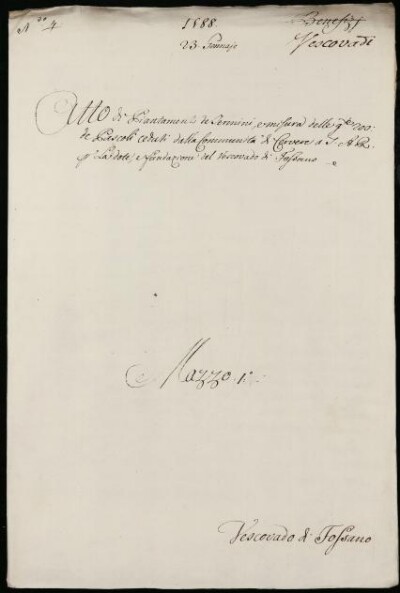 N.º 4
1588
23 Gennajo
Benefizj
Vescovadi
Atto di Piantamento de Termini, e misura delle gte 200:
de Pascoli ceduti dalla Communità di Cervere a S. A.
pr la dote, e fondazione del Vescovado di Fossano
Mazzo 1º
Vescovado di Fossano